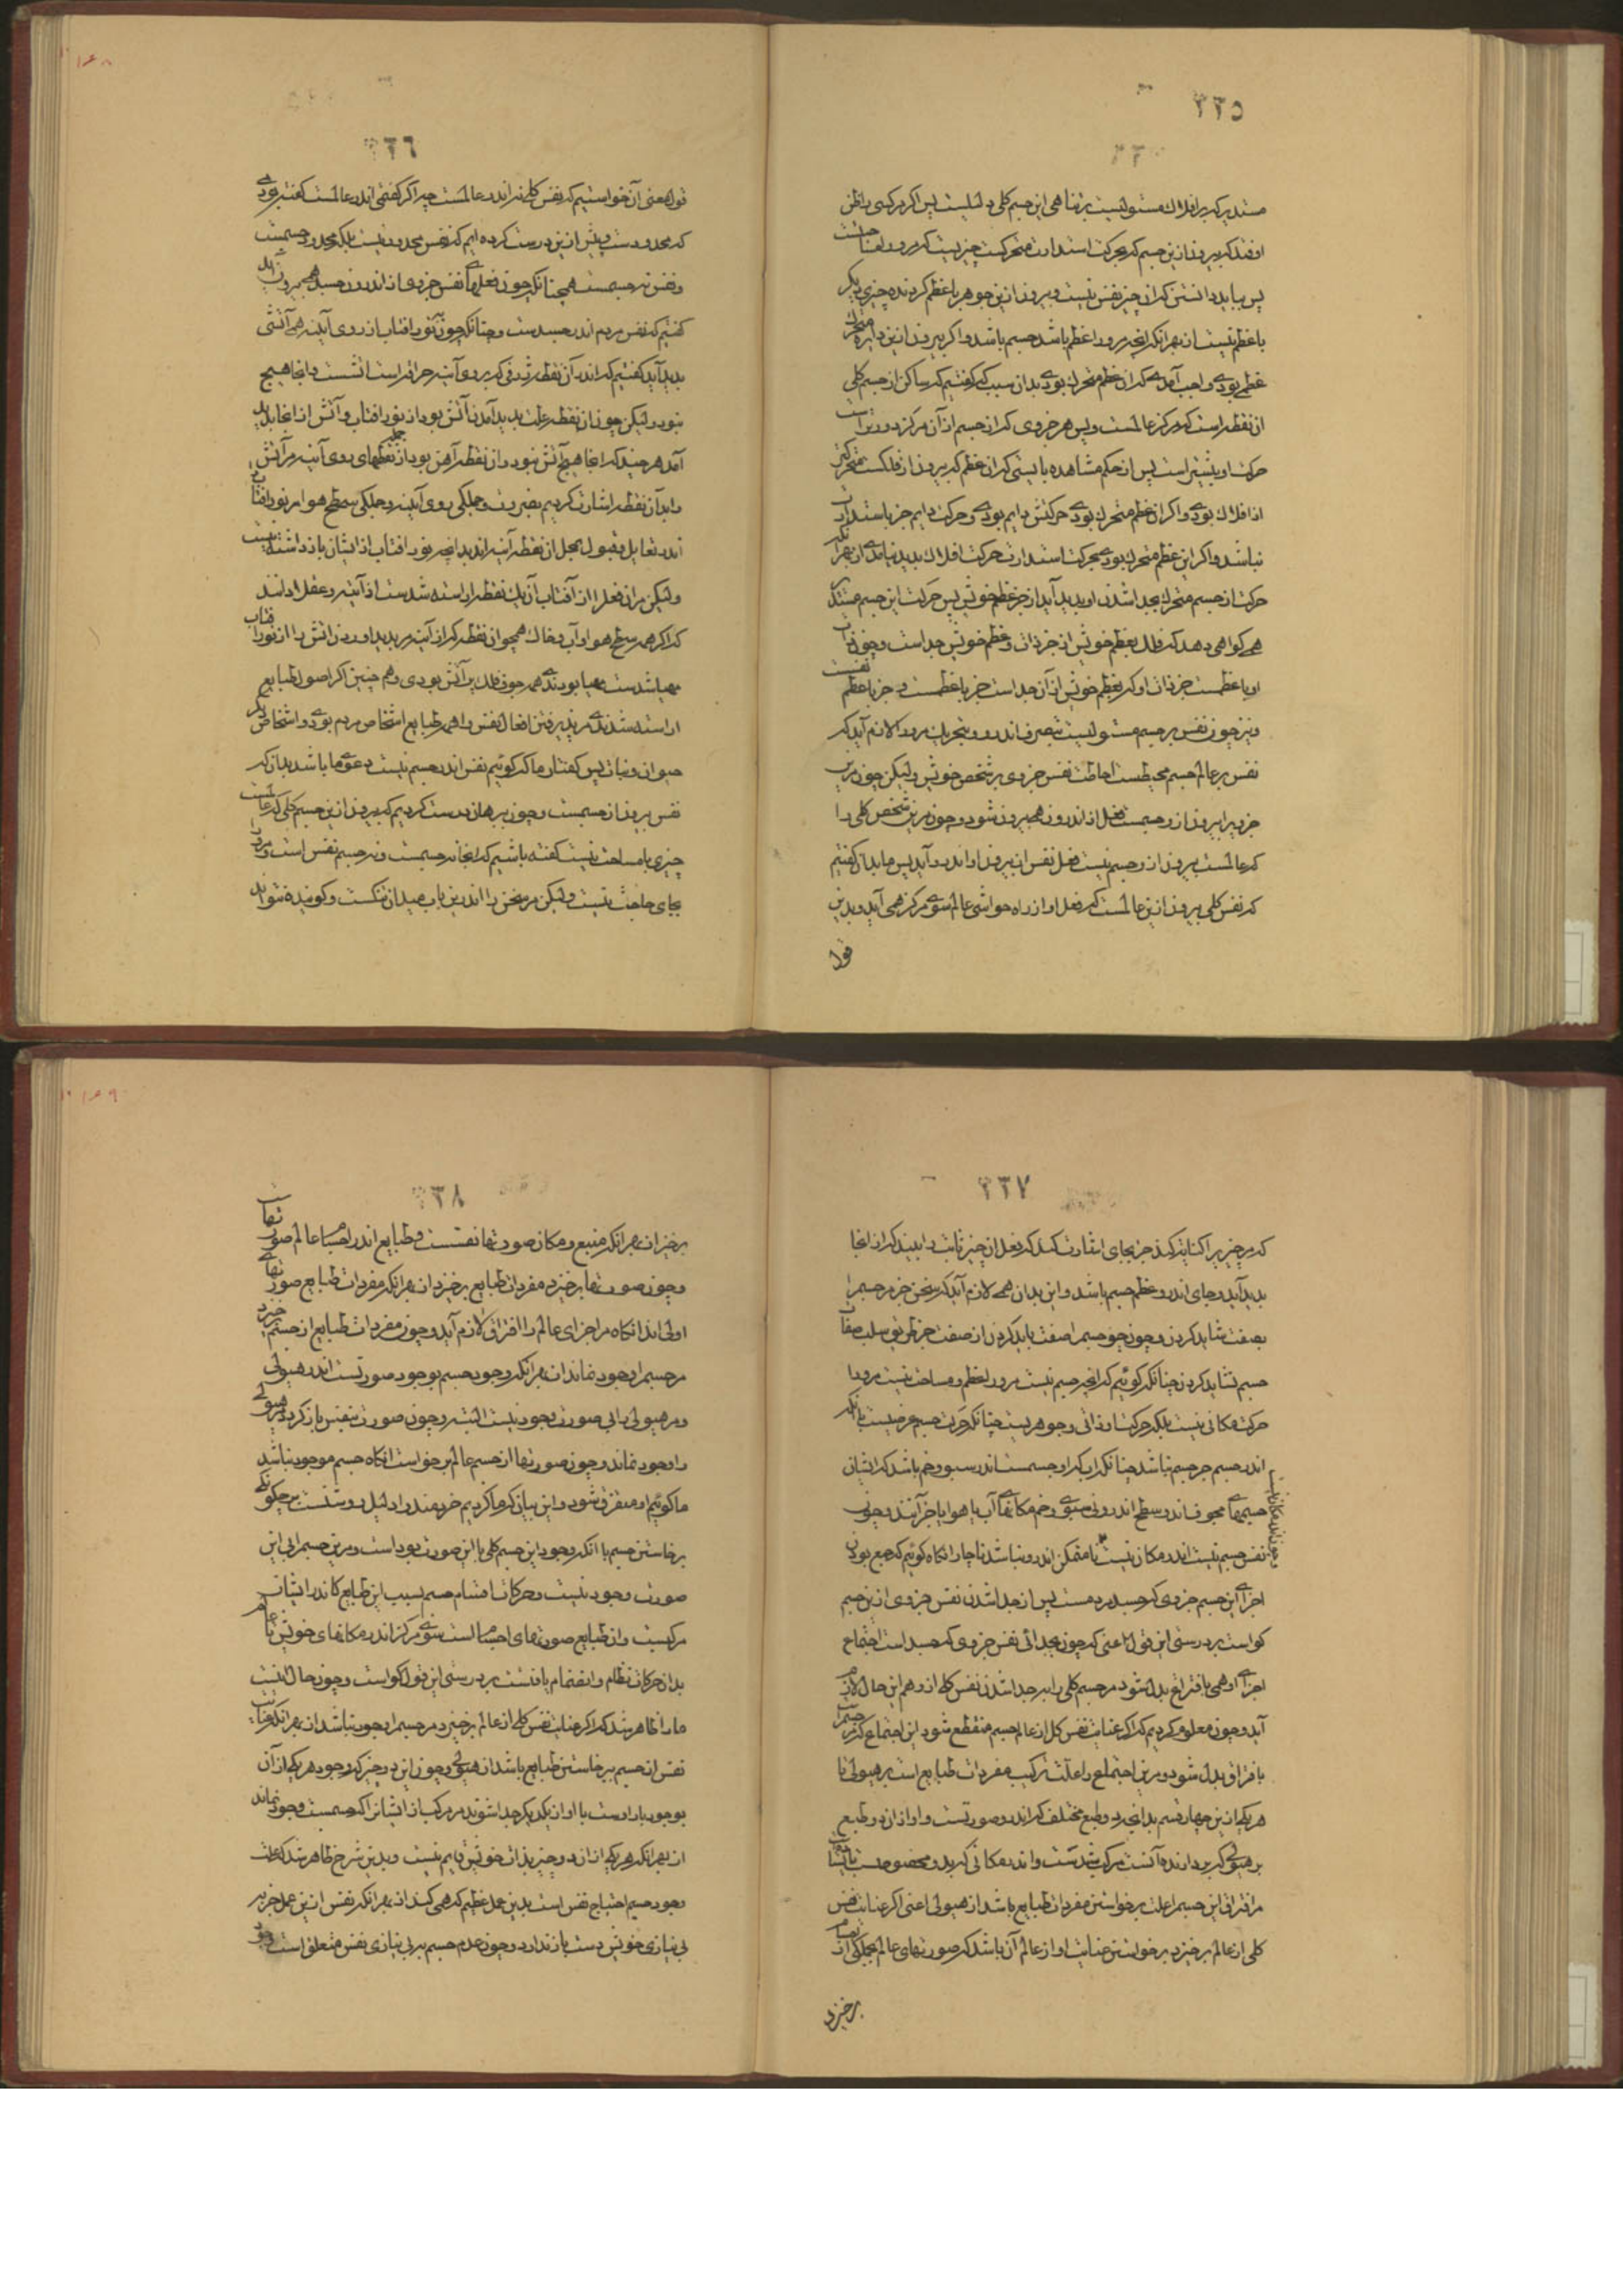 ٢٣٥
مستدیر که بر افلاک مستولیست بر تناهی این جسم کلی دلیلیست پس اگر مر کسی را ظن
اوفتد که بیرون ازین جسم که بحرکت استدارت متحرکست چیزیست که مرورا
پس بباید دانستن که آن چیز نفس نیست و بیرون ازین جوهر با عظم گردنده چیزی دیگر
با عظم نیست از بهر آنکه آنچه مرورا عظم باشد جسم باشد و اگر بیرون ازین دایره متحرک
عظمی بودی واجب آمدی که آن عظم متحرک بودی بدان سبب که گفتیم که ساکن از جسم کلی
آن نقطه است که مرکز عالمست و پس هر جزوی که از جسم از آن مرکز دورتر است
حرکت او بیشتر است پس از حکم مشاهده بایستی که آن عظم که بیرون از فلکست متحرکتر
از افلاک بودی و اگر آن عظم متحرک بودی حرکتش دایم بودی و حرکت دایم جز باستدارت
نباشد و اگر این عظم متحرک بودی بحرکت استدارت حرکت افلاک پدید نیامدی از بهر آنکه
حرکت از جسم متحرک بجدا شدن او پدید آید از جز عظم خویش پس حرکت این جسم مستدیر
همی گواهی دهد که فلک بعظم خویش از جز ذات و عظم خویش جداست و چون
او با عظمست جز ذات او که بعظم خویش از آن جداست جز با عظمست و جز با عظم نفسست
و نیز چون نفس بر جسم مستولیست بتصرف اندرو و بتحریک مرورا لازم آید که
نفس بر عالم جسم محیطست احاطت نفس جزوی بر شخص خویش ولیکن چون مرین
جزویرا بیرون ازو جسمست فعل از اندرون همی بیرون شود و چون مرین شخص کلی را
که عالمست بیرون ازو جسم نیست فعل نفس از بیرون او اندرو آید پس ما بدانکه گفتیم
که نفس کلی بیرون ازین عالمست که فعل او از راه حواشی عالم سوی مرکز همی آید و بدین
قول
٢٣٦
قول معنی آن خواستیم که نفس کلی نه اندر عالمست چه اگر گفتمی اندر عالمست گفته بودمی
که محدودست و پیش ازین درست کرده‌ایم که نفس محدود نیست بلکه محدود جسمست
و نفس نه جسمست همچنانکه چون فعلهای نفس جزوی از اندرون جسد همی بیرون آید
گفتیم که نفس مردم اندر جسدست و چنانکه چون بنور آفتاب از روی آینه همی آتشی
پدید آید گفتیم که اندر آن نقطه ژرفی که بر روی آینه حراقه است آتشست و آنجا هیچ
نبود ولیکن چون آن نقطه علت پدید آمدن آتش بود از نور آفتاب و آتش از آنجا پدید
آمد هر چند که آنجا هیچ آتش نبود و آن نقطه آهن بود از جمله نقطهای روی آینه مر آتش
را بدآن نقطه اشارت کردیم بضرورت و جملگی روی آینه و جملگی سطح هوا بر نور آفتاب
اندر تقابل و قبول بمحل آن نقطه آینه‌اند بدانچه نور آفتاب از ایشان بازداشته نیست
ولیکن مر آن فعل را از آفتاب آن یک نقطه آراسته شدست از آینه و عقلا دانند
که اگر همه سطح هوا و آب و خاک همچو آن نقطه که از آینه پدید آورد آتش را از نور آفتاب
مهیا شدست مهیا بودندی همه جوف فلک پر آتش بودی و هم چنین اگر اصول طبایع
آراسته شدندی مر پذیرفتن افعال نفس را همه طبایع اشخاص مردم بودی و اشخاص دیگر
حیوان و نبات پس گفتار ما که گوئیم نفس اندر جسم نیست دعوی ما باشد بدانکه
نفس بیرون از جسمست و چون ببرهان درست کردیم که بیرون ازین جسم کلی که عالمست
چیزی با مساحت نیست گفته باشیم که آنجا نه جسمست و نه جسم نفس است و مرورا
بجای حاجت نیست ولیکن مر سخن را اندرین باب میدان تنگست و گوینده نتواند
٢٣٧
که مر چیز را کنایه کند جز بجای اشارت کند که فعل آن چیز ثابت را بیند که از آنجا
پدید آید و جای اندر و عظم جسم باشد و این بدان همی لازم آید که سخن جز مر جسم را
بصفت نشاید کردن و چون جز جسم را صفت باید کردن آن صفت جز بطریق سلب صفات
جسم نشاید کردن چنانکه گوئیم که آنچه جسم نیست مرورا عظم و مساحت نیست مرورا
حرکت مکانی نیست بلکه حرکت او ذاتی و جوهریست چنانکه حرکت جسم عرضیست با آنکه
اندر جسم جز جسم نباشد چنانکه آب که او جسمست اندر سبو و خم باشد که ایشان
جسمهای مجوف‌اند و سطح اندرونی سبوی و خم مکانهای آب یا هوا یا جز آنند و چون
نفس جسم نیست اندر مکان نیست تا متمکن اندرو نباشد ناچار آنگاه گوئیم که جمع بودن
اجزای این جسم جزوی که جسد مردمست پس از جدا شدن نفس جزوی ازین جسم
گواست بر درستی این قول اعنی که چون بجدائی نفس جزوی که جسد است اجتماع
اجزای او همی بافتراق بدل شود مر جسم کلی را بر جدا شدن نفس کلی ازو هم این حال لازم
آید و چون معلوم کردیم که اگر عنایت نفس کل از عالم جسم منقطع شود این اجتماع که مر جسم راست
بافتراق بدل شود و مرین اجتماع را علت ترکیب مفردات طبایع است بر هیولی تا
هر یکی ازین چهار قسم بدانچه دو طبع مختلف که اندرو صورتست و او از آن دو طبع
بر هیولی که بردارنده آنست مرکب شدست و اندر مکانی که بدو مخصوصست
مر افتراق این جسم را علت برخواستن مفردات طبایع باشد از هیولی اعنی اگر عنایت نفس
کلی از عالم برخیزد برخواستن عنایت او از عالم آن باشد که صورتهای عالم بجملگی
برخیزد
٢٣٨
برخیزد از بهر آنکه منبع و مکان صورتها نفسست و طبایع اندر اجسام عالم صورتهاست
و چون صورتها برخیزد مفردات طبایع برخیزد از بهر آنکه مفردات طبایع صورتهای
اولی‌اند آنگاه مر اجزای عالم را افتراق لازم آید و چون مفردات طبایع از جسم خیزد
مر جسم را وجود نماند از بهر آنکه وجود جسم بوجود صورتست اندر هیولی
و مر هیولی را بی صورت وجود نیست البته و چون صورت بنفس باز گردد مر هیولی
را وجود نماند و چون صورتها از جسم عالم برخواست آنگاه جسم موجود نباشد
ما گوئیم او متفرق شود و این بیان که ما کردیم خردمند را دلیل روشنست بر چگونگی
برخاستن جسم با آنکه وجود این جسم کلی با این صورت بود است و مرین جسم را بی این
صورت وجود نیست و حرکات اقسام جسم بسبب این طبایع کاندر ایشان
مرکبست و آن طبایع صورتهای اجسام است سوی مرکز اندر مکانهای خویش تا عالم
بدان حرکات نظام و انضمام یافتست بر درستی این قول گواست و چون حال اینست
ما را ظاهر شد که اگر عنایت نفس کلی از عالم برخیزد مر جسم را وجود نباشد از بهر آنکه عنایت
نفس از جسم برخاستن طبایع باشد از هیولی و چون این دو چیز که وجود هر یکی از آن
بوجود یار اوست با او از یکدیگر جدا شوند مر مرکب از ایشانرا که جسمست وجود نماند
از بهر آنکه هر یکی از آن دو چیز بذات خویش قایم نیست و بدین شرح ظاهر شد که علت
وجود جسم احتیاج نفس است بدین عمل عظیم که همی کند از بهر آنکه نفس ازین عمل جز ببر
بی‌نیازی خویش دست باز ندارد و چون عدم جسم ببی‌نیازی نفس متعلق است